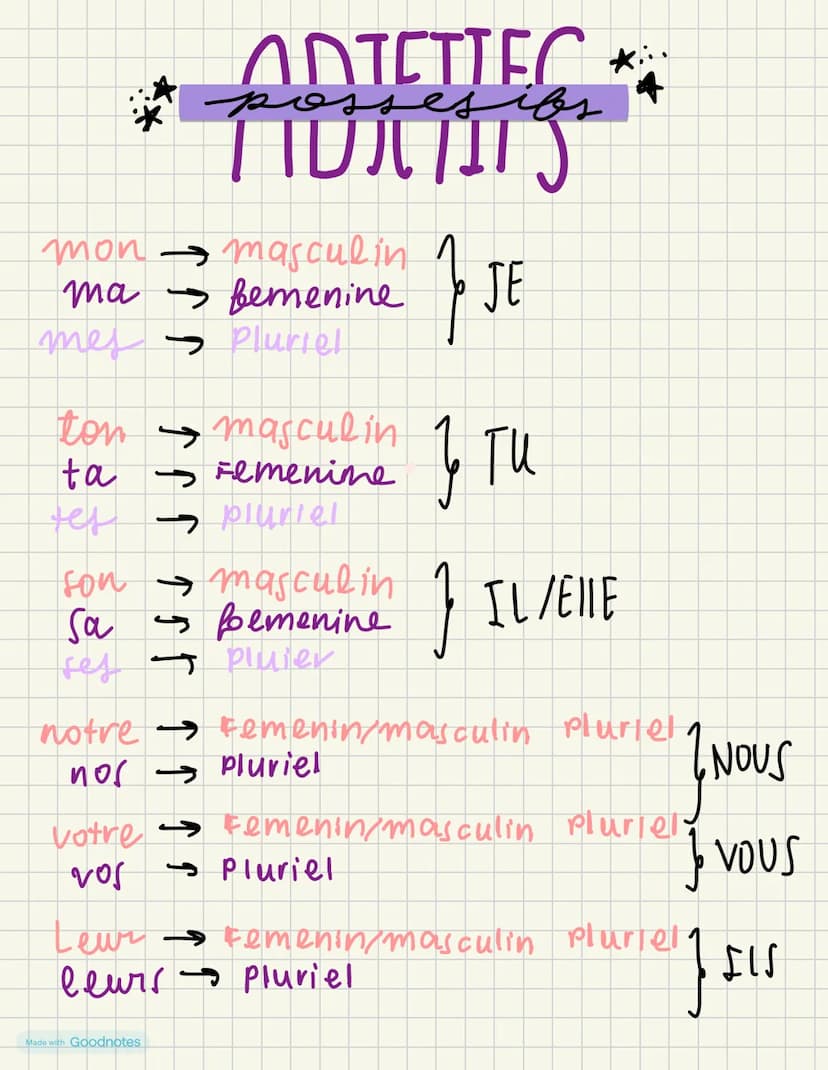 ADJETIFS
possesifs
mon → masculin
ma → femenine } JE
mes → pluriel
ton → masculin
ta → Femenine } TU
tes → pluriel
son → masculin
sa → femenine } IL/EllE
ses → pluier
notre → Femenin/masculin pluriel
nos → pluriel } NOUS
votre → Femenin/masculin pluriel
vos → pluriel } VOUS
Leur → Femenin/masculin pluriel
leurs → pluriel } Ils
Made with Goodnotes